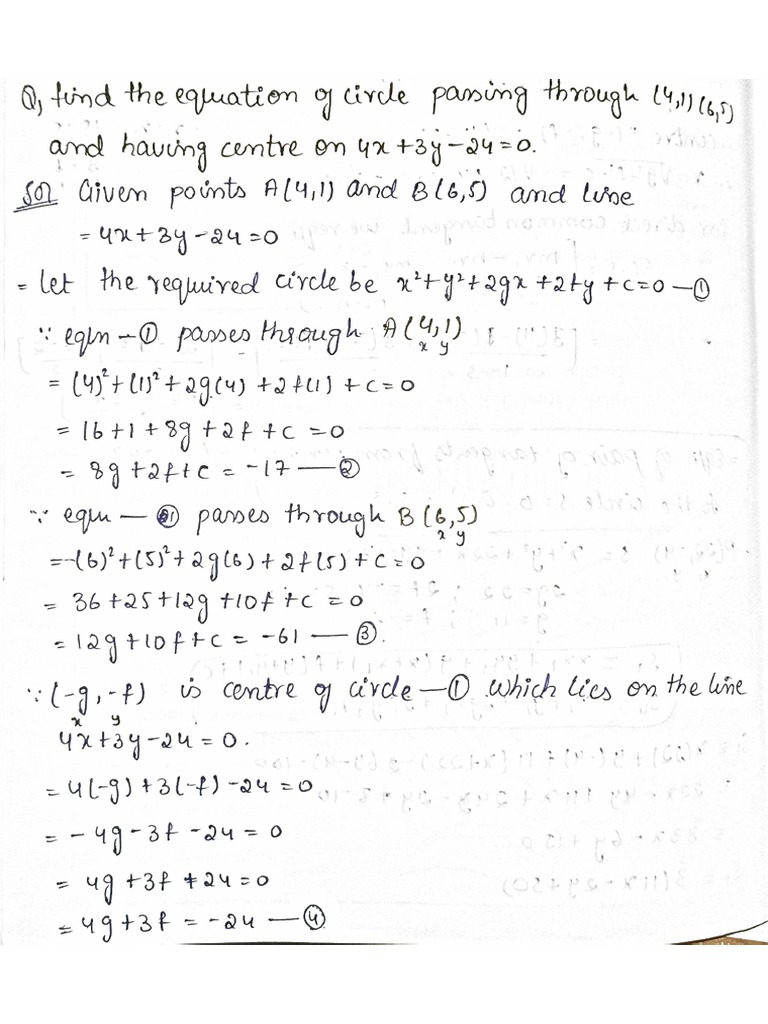 Q, find the equation of circle passing through (4,1) (6,5)
and having centre on 4x+3y-24=0.
Sol Given points A(4,1) and B(6,5) and line
= 4x+3y-24=0
= let the required circle be x²+y²+2gx+2fy+c=0 —①
∵ eqn —① passes through A(4,1)
x y
= (4)²+(1)²+2g(4)+2f(1)+c=0
= 16+1+8g+2f+c=0
= 8g+2f+c = -17 —②
∵ eqn —① passes through B(6,5)
x y
= (6)²+(5)²+2g(6)+2f(5)+c=0
= 36+25+12g+10f+c=0
= 12g+10f+c = -61 —③.
∵ (-g,-f) is centre of circle —① which lies on the line
x y
4x+3y-24=0.
= 4(-g)+3(-f)-24=0
= -4g-3f-24=0
= 4g+3f+24=0
= 4g+3f = -24 —④